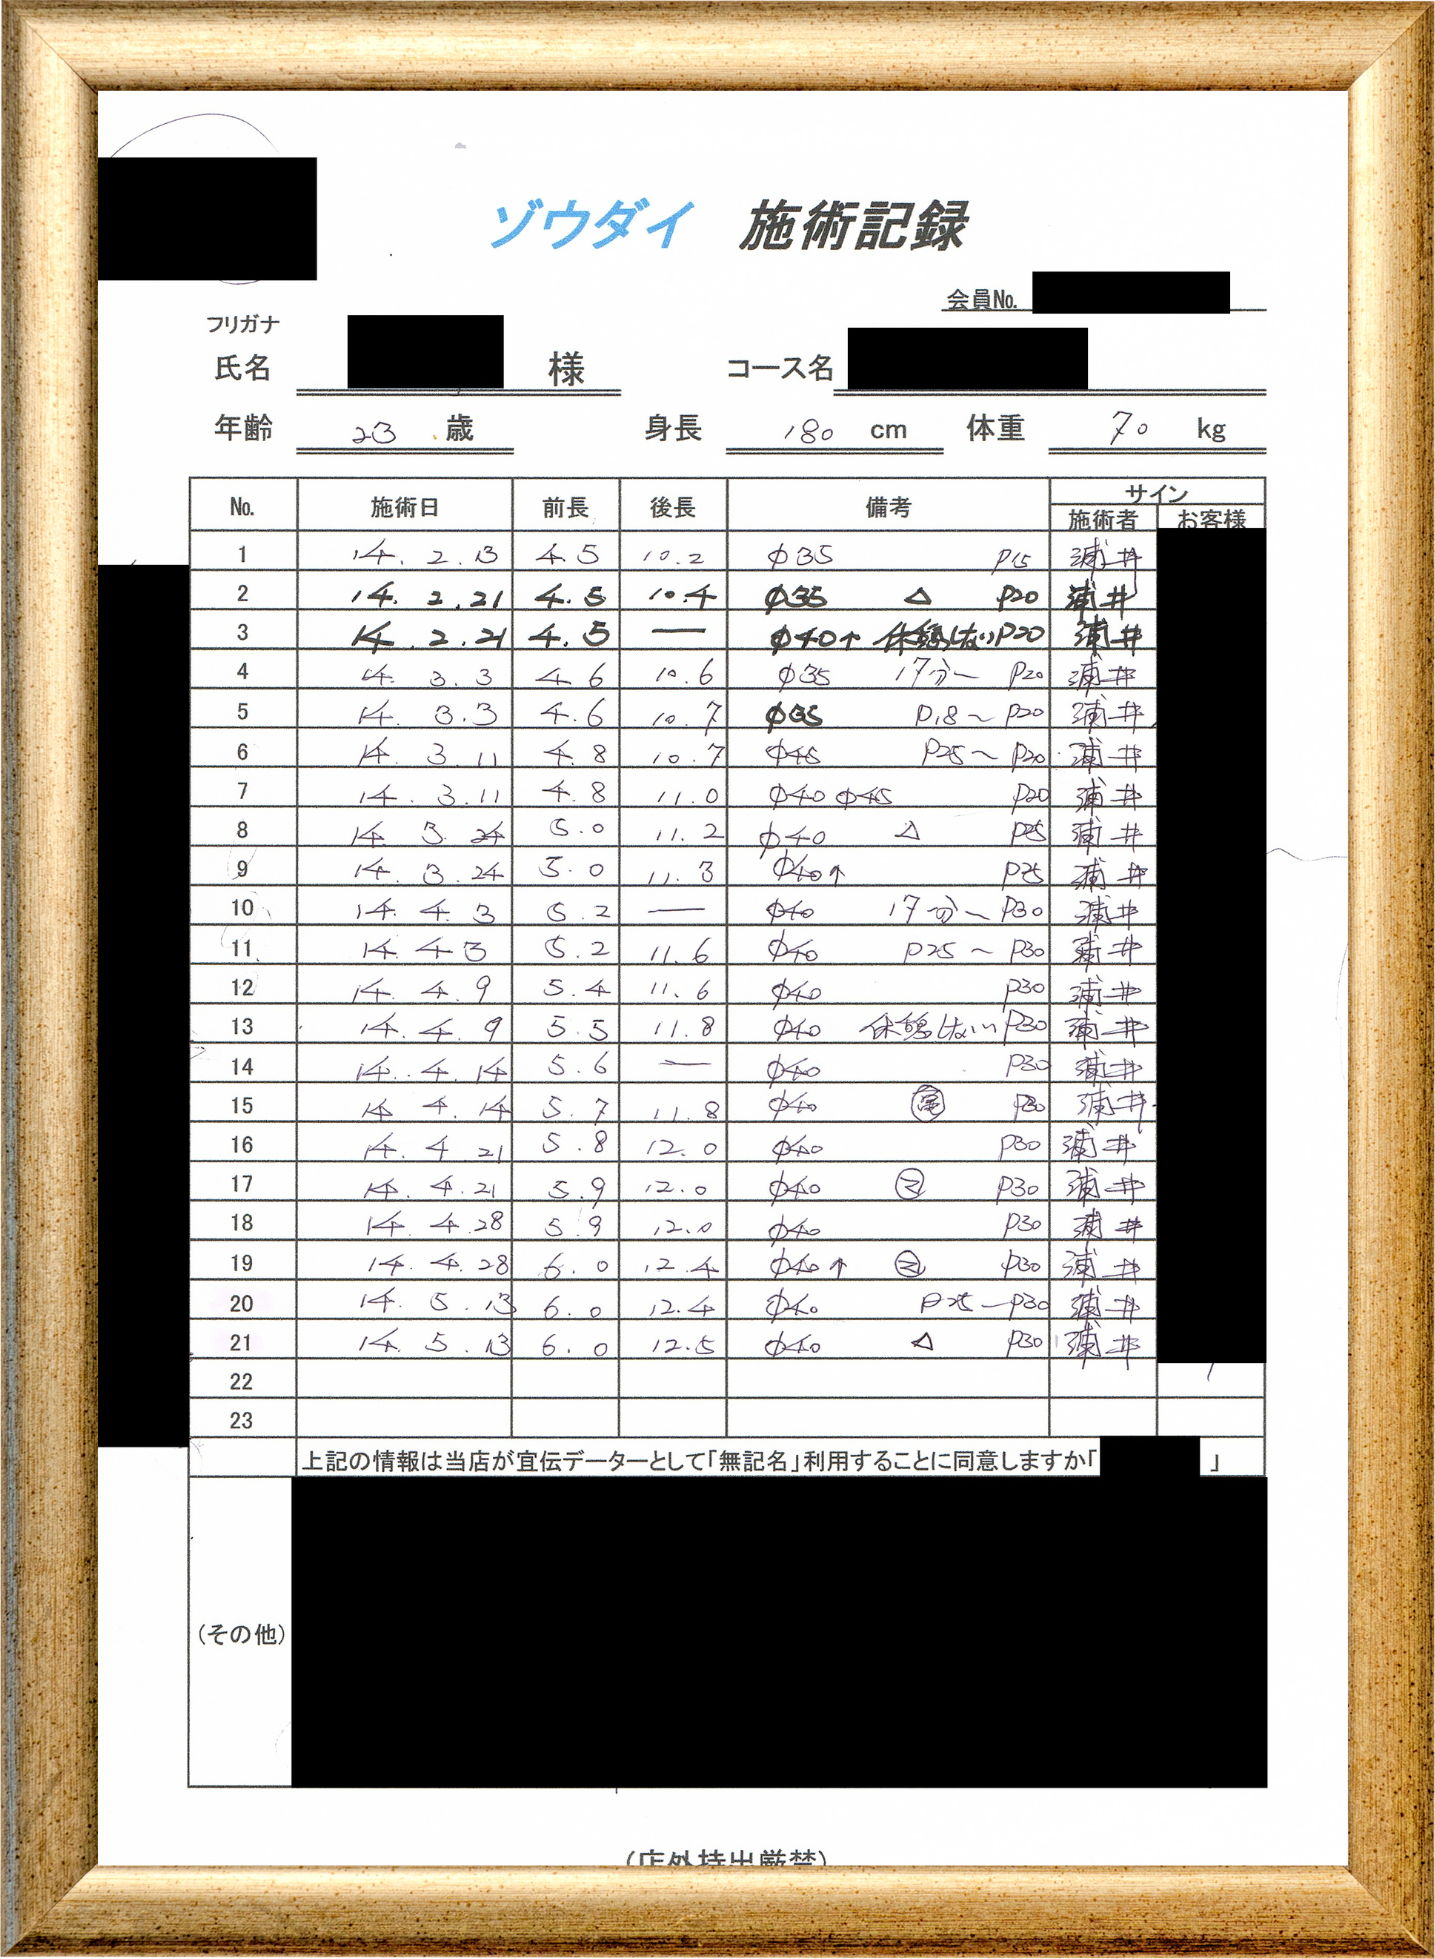 ゾウダイ 施術記録
会員No.
フリガナ
氏名 様 コース名
年齢 23 歳 身長 180 cm 体重 70 kg
No. 施術日 前長 後長 備考 サイン
施術者 お客様
1 14. 2. 13 4.5 10.2 φ35 P15 浦井
2 14. 2. 21 4.5 10.4 φ35 △ P20 浦井
3 14. 2. 21 4.5 — φ40↑ 休憩しない P20 浦井
4 14. 3. 3 4.6 10.6 φ35 17分~ P20 浦井
5 14. 3. 3 4.6 10.7 φ35 P18~P20 浦井
6 14. 3. 11 4.8 10.7 φ45 P25~P20 浦井
7 14. 3. 11 4.8 11.0 φ40 φ45 P20 浦井
8 14. 3. 24 5.0 11.2 φ40 △ P25 浦井
9 14. 3. 24 5.0 11.3 φ40↑ P25 浦井
10 14. 4. 3 5.2 — φ40 17分~P30 浦井
11 14. 4. 3 5.2 11.6 φ40 P25~P30 浦井
12 14. 4. 9 5.4 11.6 φ40 P30 浦井
13 14. 4. 9 5.5 11.8 φ40 休憩しない P30 浦井
14 14. 4. 14 5.6 — φ40 P30 浦井
15 14. 4. 14 5.7 11.8 φ40 P30 浦井
16 14. 4. 21 5.8 12.0 φ40 P30 浦井
17 14. 4. 21 5.9 12.0 φ40 P30 浦井
18 14. 4. 28 5.9 12.0 φ40 P30 浦井
19 14. 4. 28 6.0 12.4 φ40↑ P30 浦井
20 14. 5. 13 6.0 12.4 φ40 P25~P30 浦井
21 14. 5. 13 6.0 12.5 φ40 △ P30 浦井
22
23
上記の情報は当店が宣伝データーとして「無記名」利用することに同意しますか「 」
(その他)
(店外持出厳禁)